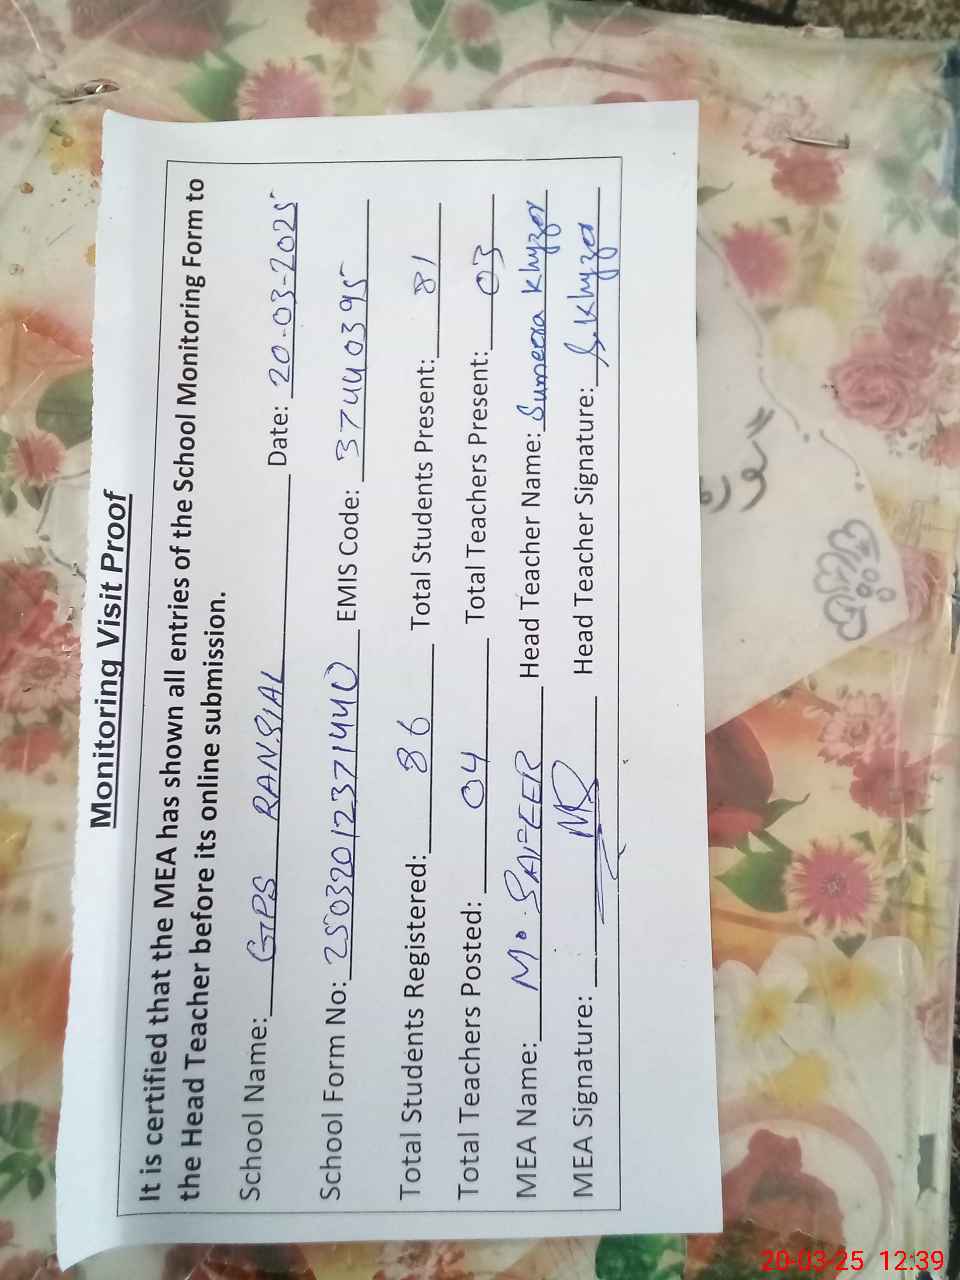 Monitoring Visit Proof
It is certified that the MEA has shown all entries of the School Monitoring Form to
the Head Teacher before its online submission.
School Name: GPS RANSIAL Date: 20-03-2025
School Form No: 250320123714440 EMIS Code: 37440395
Total Students Registered: 86 Total Students Present: 81
Total Teachers Posted: 04 Total Teachers Present: 03
MEA Name: M. SAFEER Head Teacher Name: Sumeera Khyzar
MEA Signature: MS Head Teacher Signature: S. Khyza
20-03-25 12:39